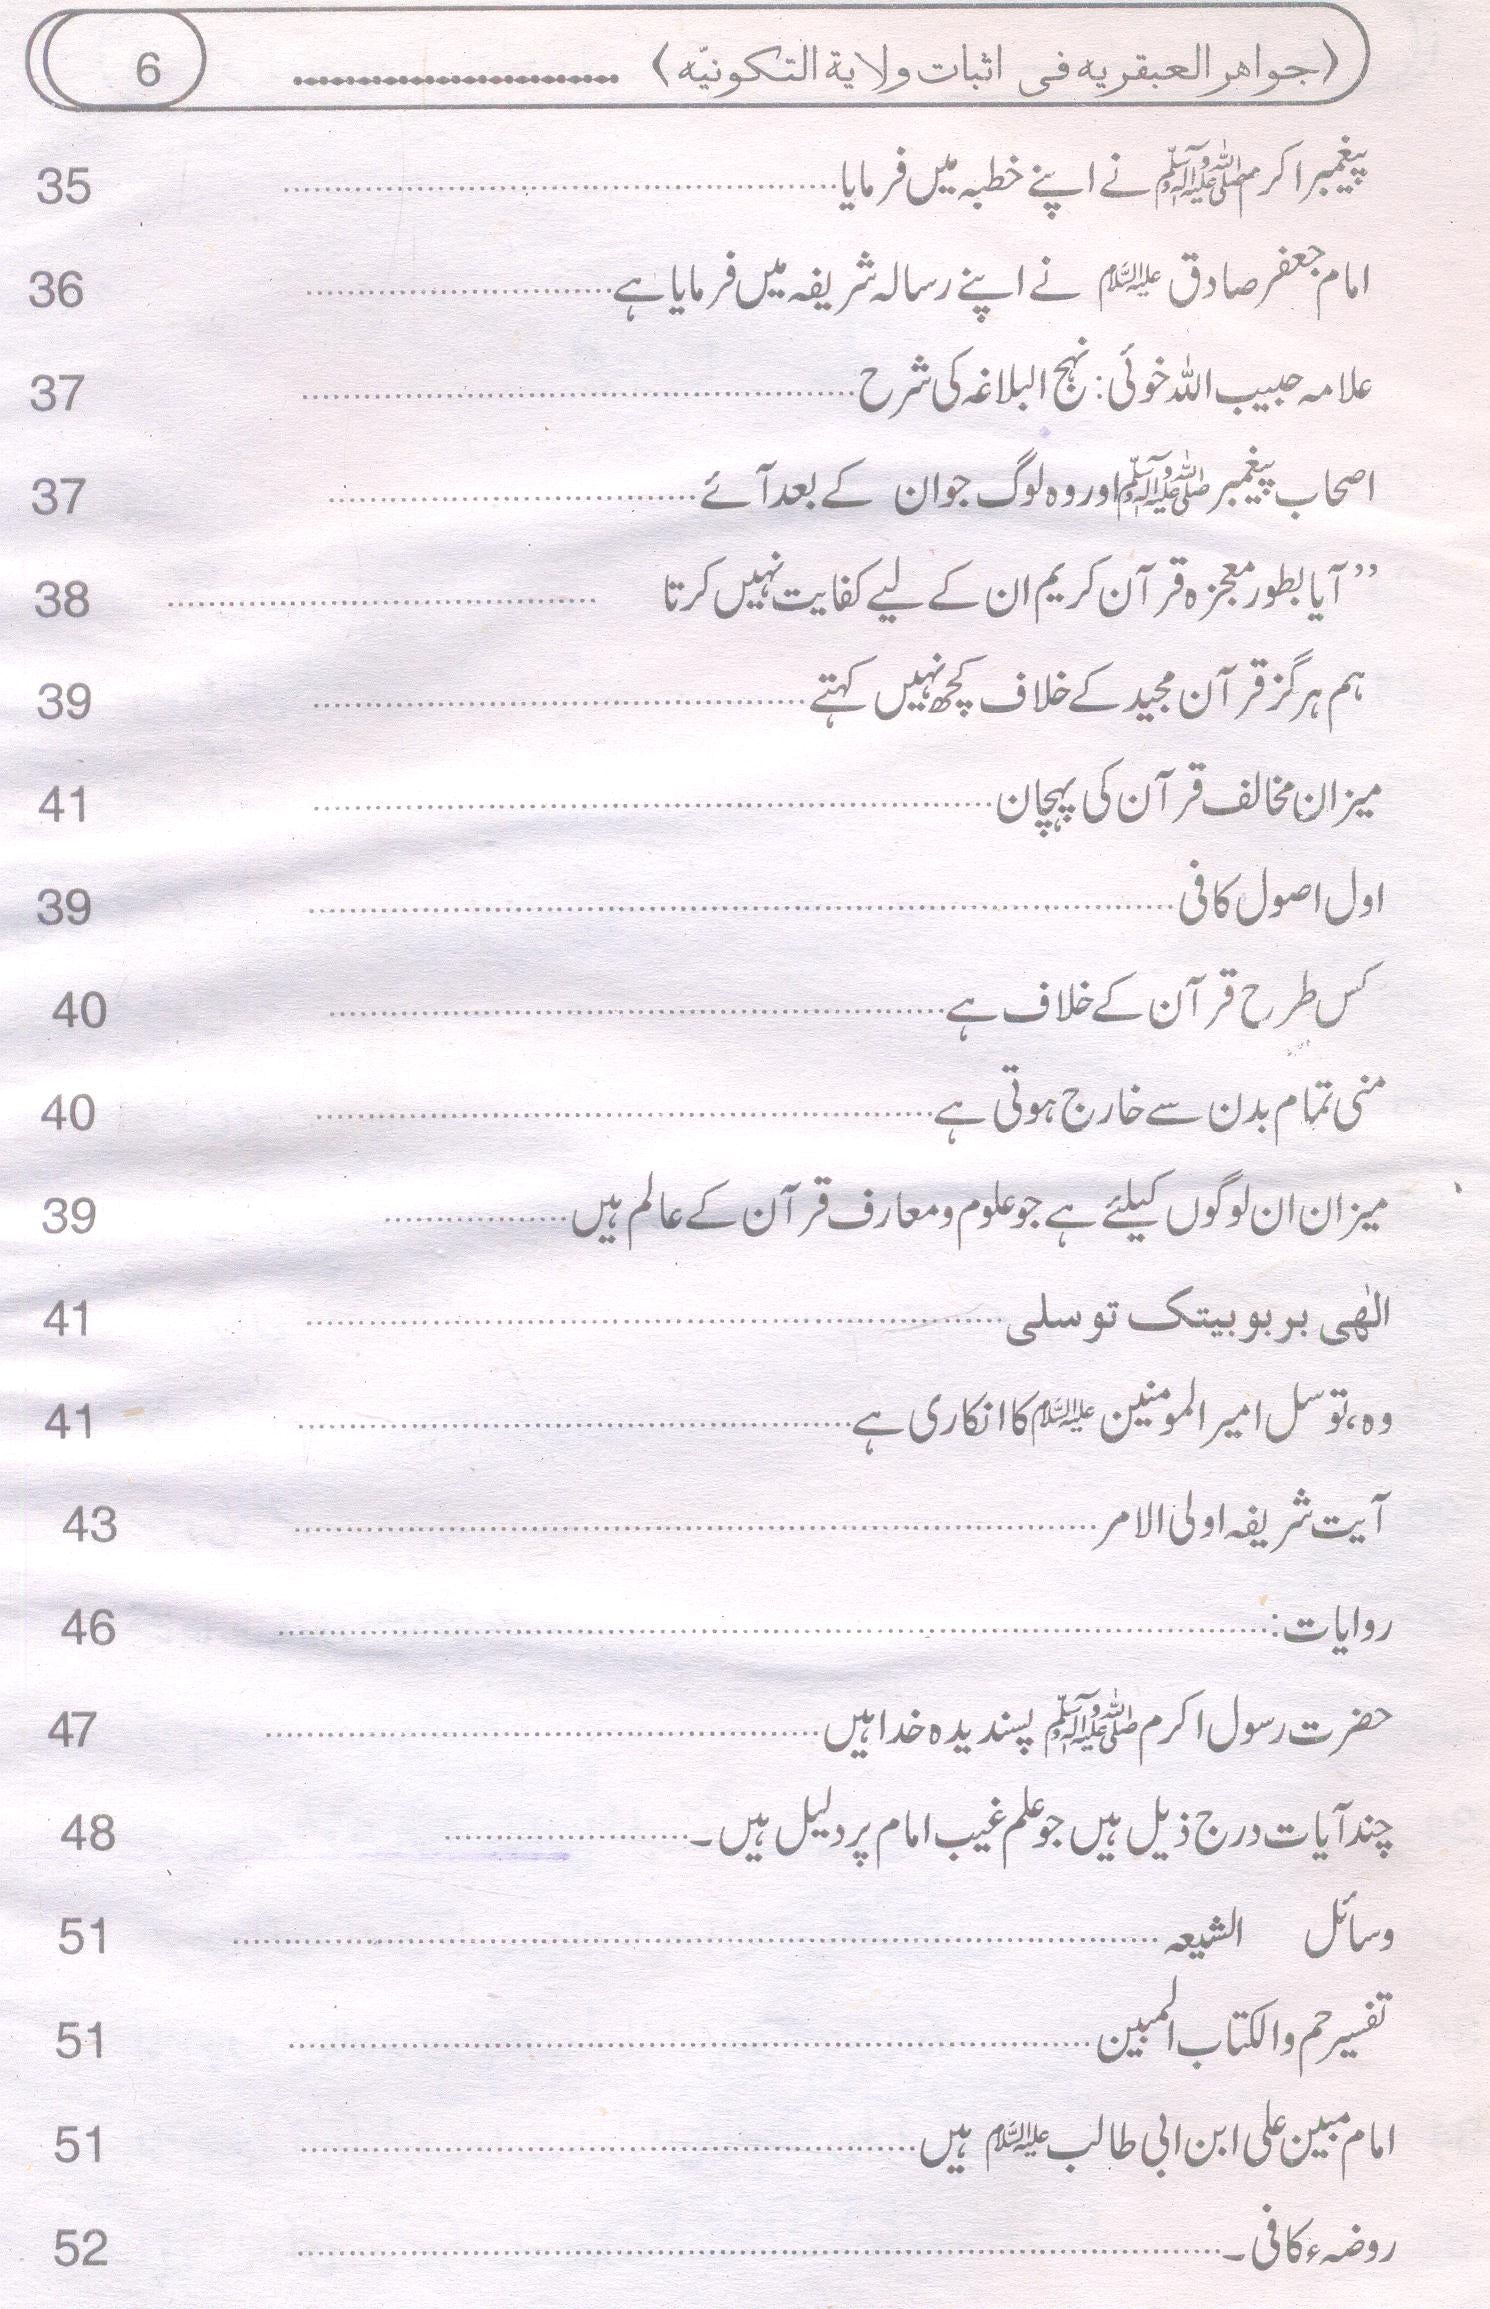 ﴿جواهر العبقریه فی اثبات ولایة التکونیّه﴾ ........................ 6
پیغمبر اکرم ﷺ نے اپنے خطبہ میں فرمایا ........................ 35
امام جعفر صادق علیہ السلام نے اپنے رسالہ شریفہ میں فرمایا ہے ........................ 36
علامہ حبیب اللہ خوئی: نہج البلاغہ کی شرح ........................ 37
اصحاب پیغمبر ﷺ اور وہ لوگ جو ان کے بعد آئے ........................ 37
”آیا بطور معجزہ قرآن کریم ان کے لیے کفایت نہیں کرتا ........................ 38
ہم ہرگز قرآن مجید کے خلاف کچھ نہیں کہتے ........................ 39
میزان مخالف قرآن کی پہچان ........................ 41
اول اصول کافی ........................ 39
کس طرح قرآن کے خلاف ہے ........................ 40
منی تمام بدن سے خارج ہوتی ہے ........................ 40
میزان ان لوگوں کیلئے ہے جو علوم و معارف قرآن کے عالم ہیں ........................ 39
الٰهی بربوبیتک توسلی ........................ 41
وہ، توسل امیر المومنین علیہ السلام کا انکاری ہے ........................ 41
آیت شریفہ اولی الامر ........................ 43
روایات: ........................ 46
حضرت رسول اکرم ﷺ پسندیدہ خدا ہیں ........................ 47
چند آیات درج ذیل ہیں جو علم غیب امام پر دلیل ہیں۔ ........................ 48
وسائل الشیعہ ........................ 51
تفسیر حم والکتاب المبین ........................ 51
امام مبین علی ابن ابی طالب علیہ السلام ہیں ........................ 51
روضہء کافی۔ ........................ 52